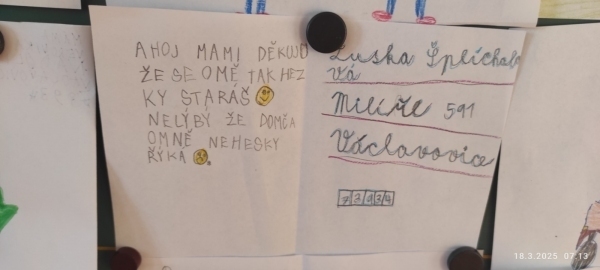 AHOJ MAMI DĚKUJU
ŽE SE OMĚ TAK HEZ
KY STARÁŠ
NELÝBÝ ŽE DOMČA
OMNĚ NEHESKY
ŘÝKA
Luska Šplíchalo
vá
Milíře 591
Václavovice
73934
18.3.2025 07:13